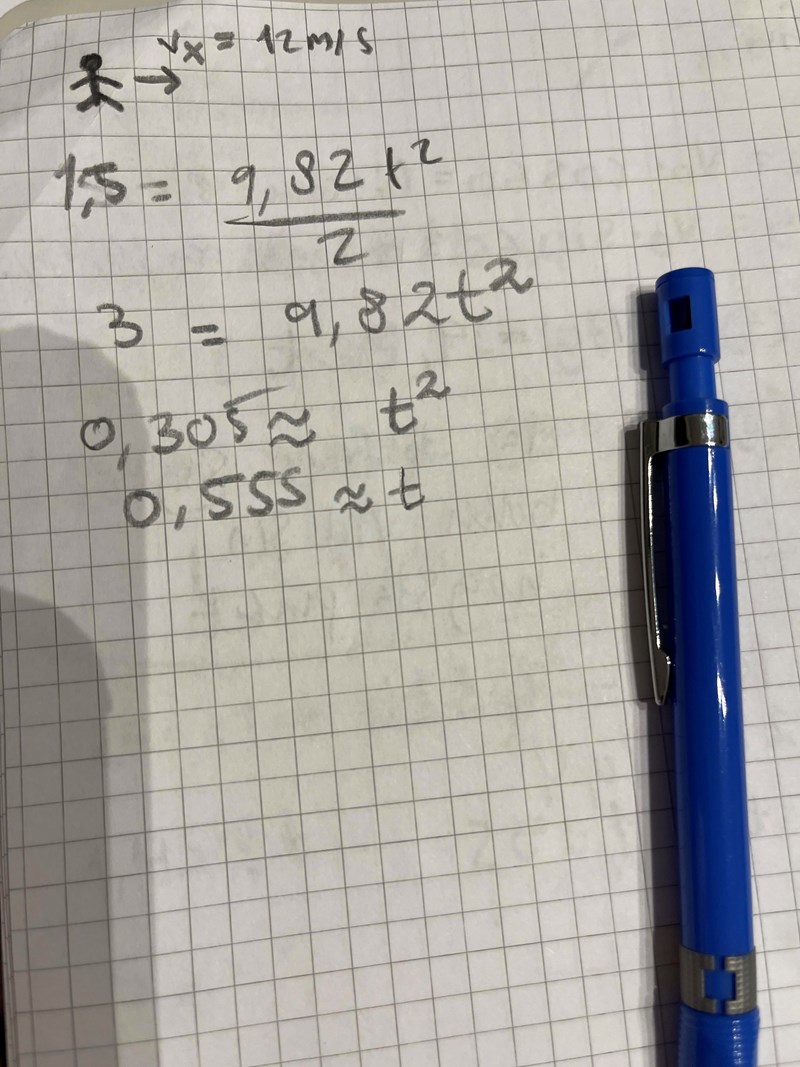 vx = 12 m/s
1,5 = 9,82 t²
2
3 = 9,82t²
0,305 ≈ t²
0,555 ≈ t